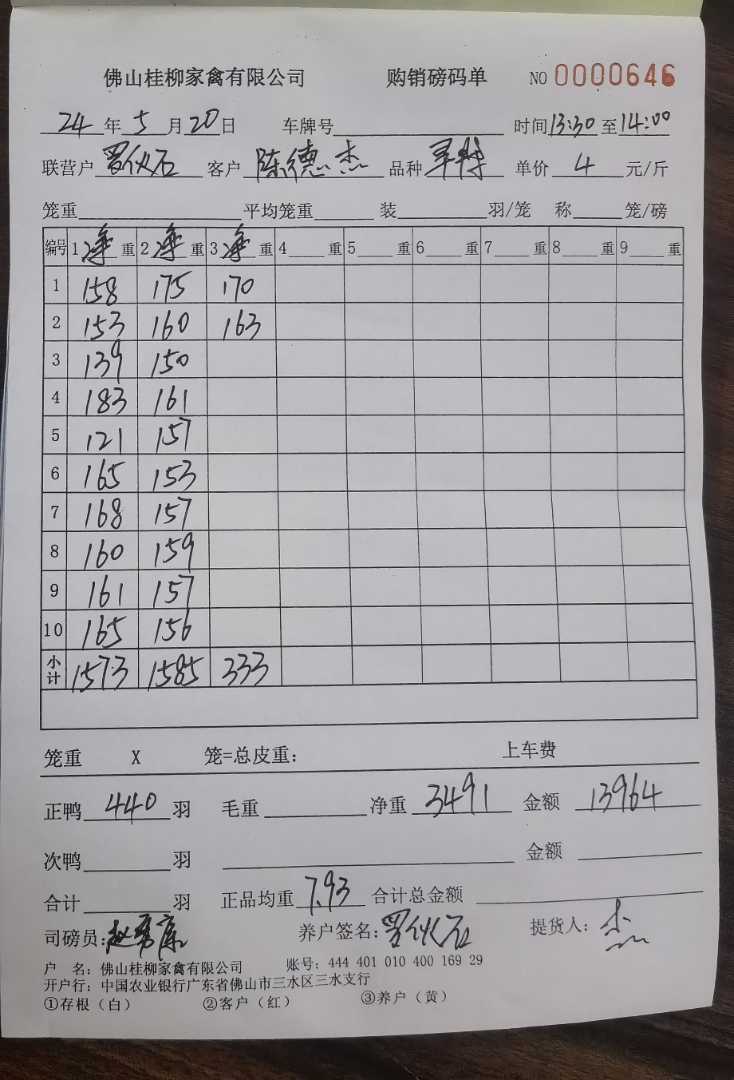 佛山桂柳家禽有限公司 购销磅码单 NO 0000646
24年5月20日 车牌号 时间13:30至14:00
联营户 罗伙石 客户 陈德杰 品种 单价 4 元/斤
笼重 平均笼重 装 羽/笼 称 笼/磅
编号 1净重 2净重 3净重 4 重 5 重 6 重 7 重 8 重 9 重
1 158 175 170
2 153 160 163
3 139 150
4 183 161
5 121 157
6 165 153
7 168 157
8 160 159
9 161 157
10 165 156
小计 1573 1585 333
笼重 X 笼=总皮重: 上车费
正鸭 440 羽 毛重 净重 3491 金额 13964
次鸭 羽 金额
合计 羽 正品均重 7.93 合计总金额
司磅员: 养户签名: 罗伙石 提货人: 杰
户 名: 佛山桂柳家禽有限公司 账号: 444 401 010 400 169 29
开户行: 中国农业银行广东省佛山市三水区三水支行
①存根(白) ②客户(红) ③养户(黄)